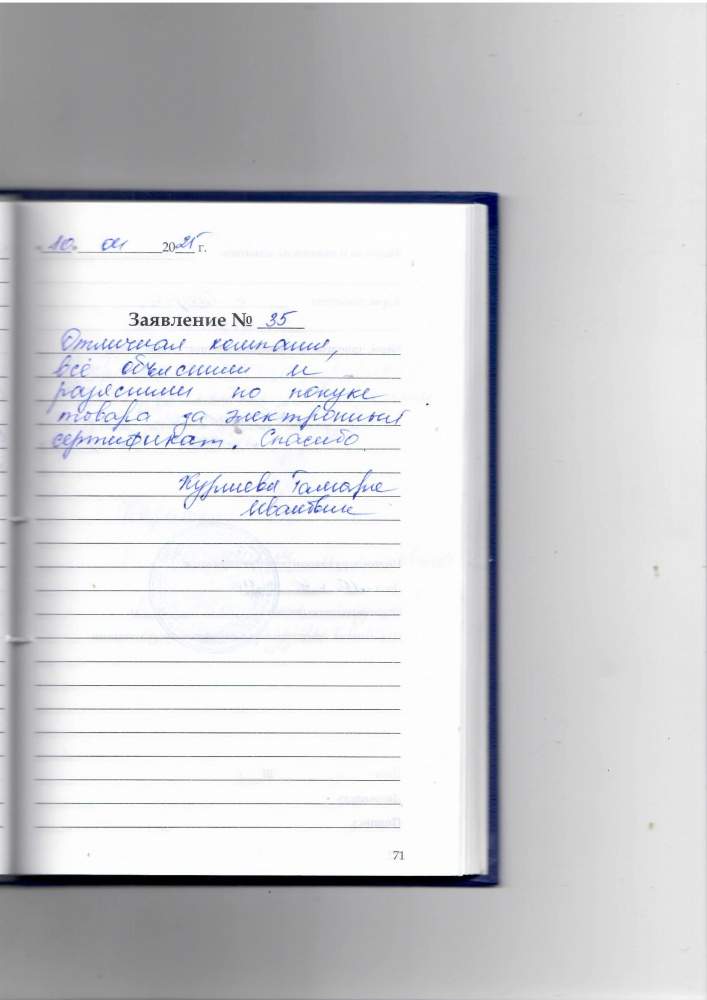 "10" 01 2025 г.
Заявление № 35
Отличная компания,
всё объяснили и
разяснили по покуке
товара за электронный
сертификат. Спасибо
Тамара
71